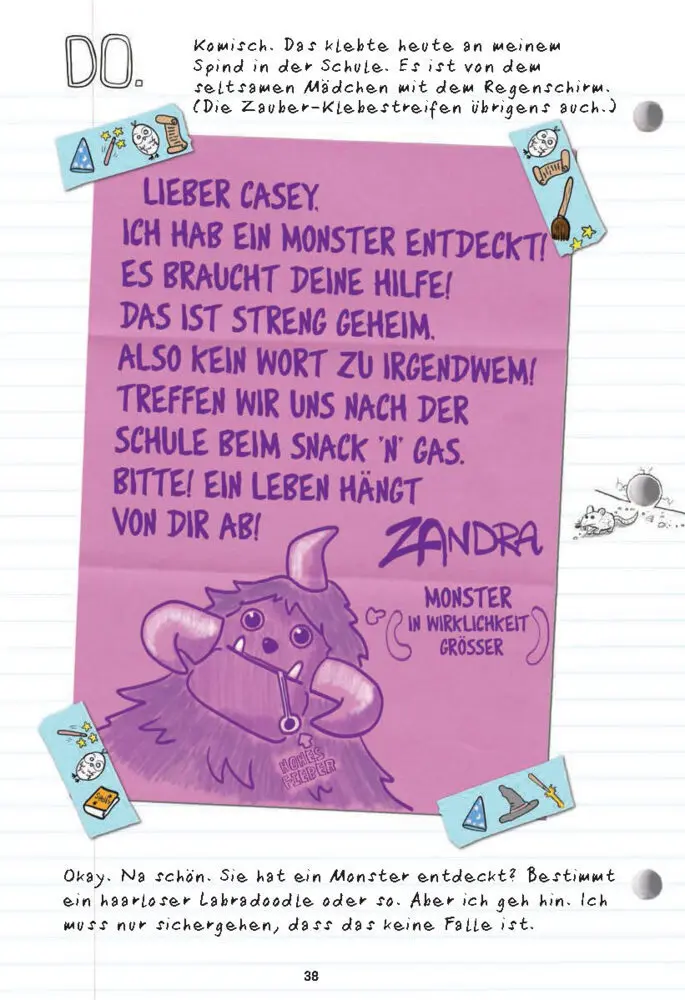 DO.
Komisch. Das klebte heute an meinem
Spind in der Schule. Es ist von dem
seltsamen Mädchen mit dem Regenschirm.
(Die Zauber-Klebestreifen übrigens auch.)
LIEBER CASEY,
ICH HAB EIN MONSTER ENTDECKT!
ES BRAUCHT DEINE HILFE!
DAS IST STRENG GEHEIM.
ALSO KEIN WORT ZU IRGENDWEM!
TREFFEN WIR UNS NACH DER
SCHULE BEIM SNACK 'N' GAS.
BITTE! EIN LEBEN HÄNGT
VON DIR AB!
ZANDRA
MONSTER
IN WIRKLICHKEIT
GRÖSSER
HOHES
FIEBER
Okay. Na schön. Sie hat ein Monster entdeckt? Bestimmt
ein haarloser Labradoodle oder so. Aber ich geh hin. Ich
muss nur sichergehen, dass das keine Falle ist.
38